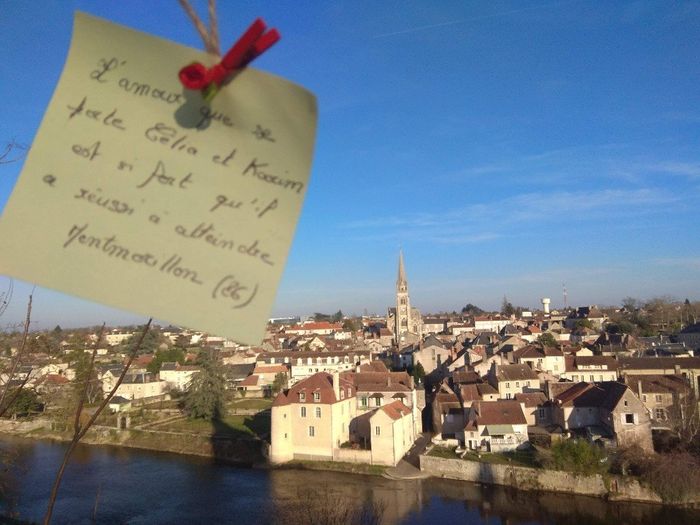 L'amour que se
porte Célia et Karim
est si fort qu'il
a réussi à atteindre
Montmorillon (86)